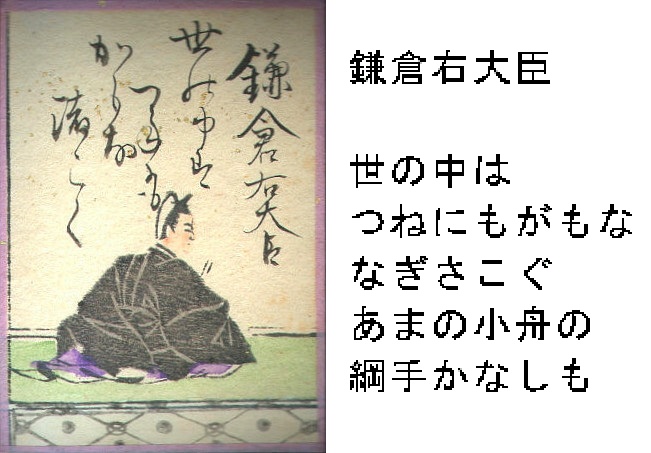 鎌倉右大臣
世の中は
つねにも
かもな
渚こく
鎌倉右大臣
世の中は
つねにもがもな
なぎさこぐ
あまの小舟の
綱手かなしも